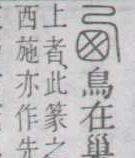 西鳥在巢
上者、此篆之
西施亦作先